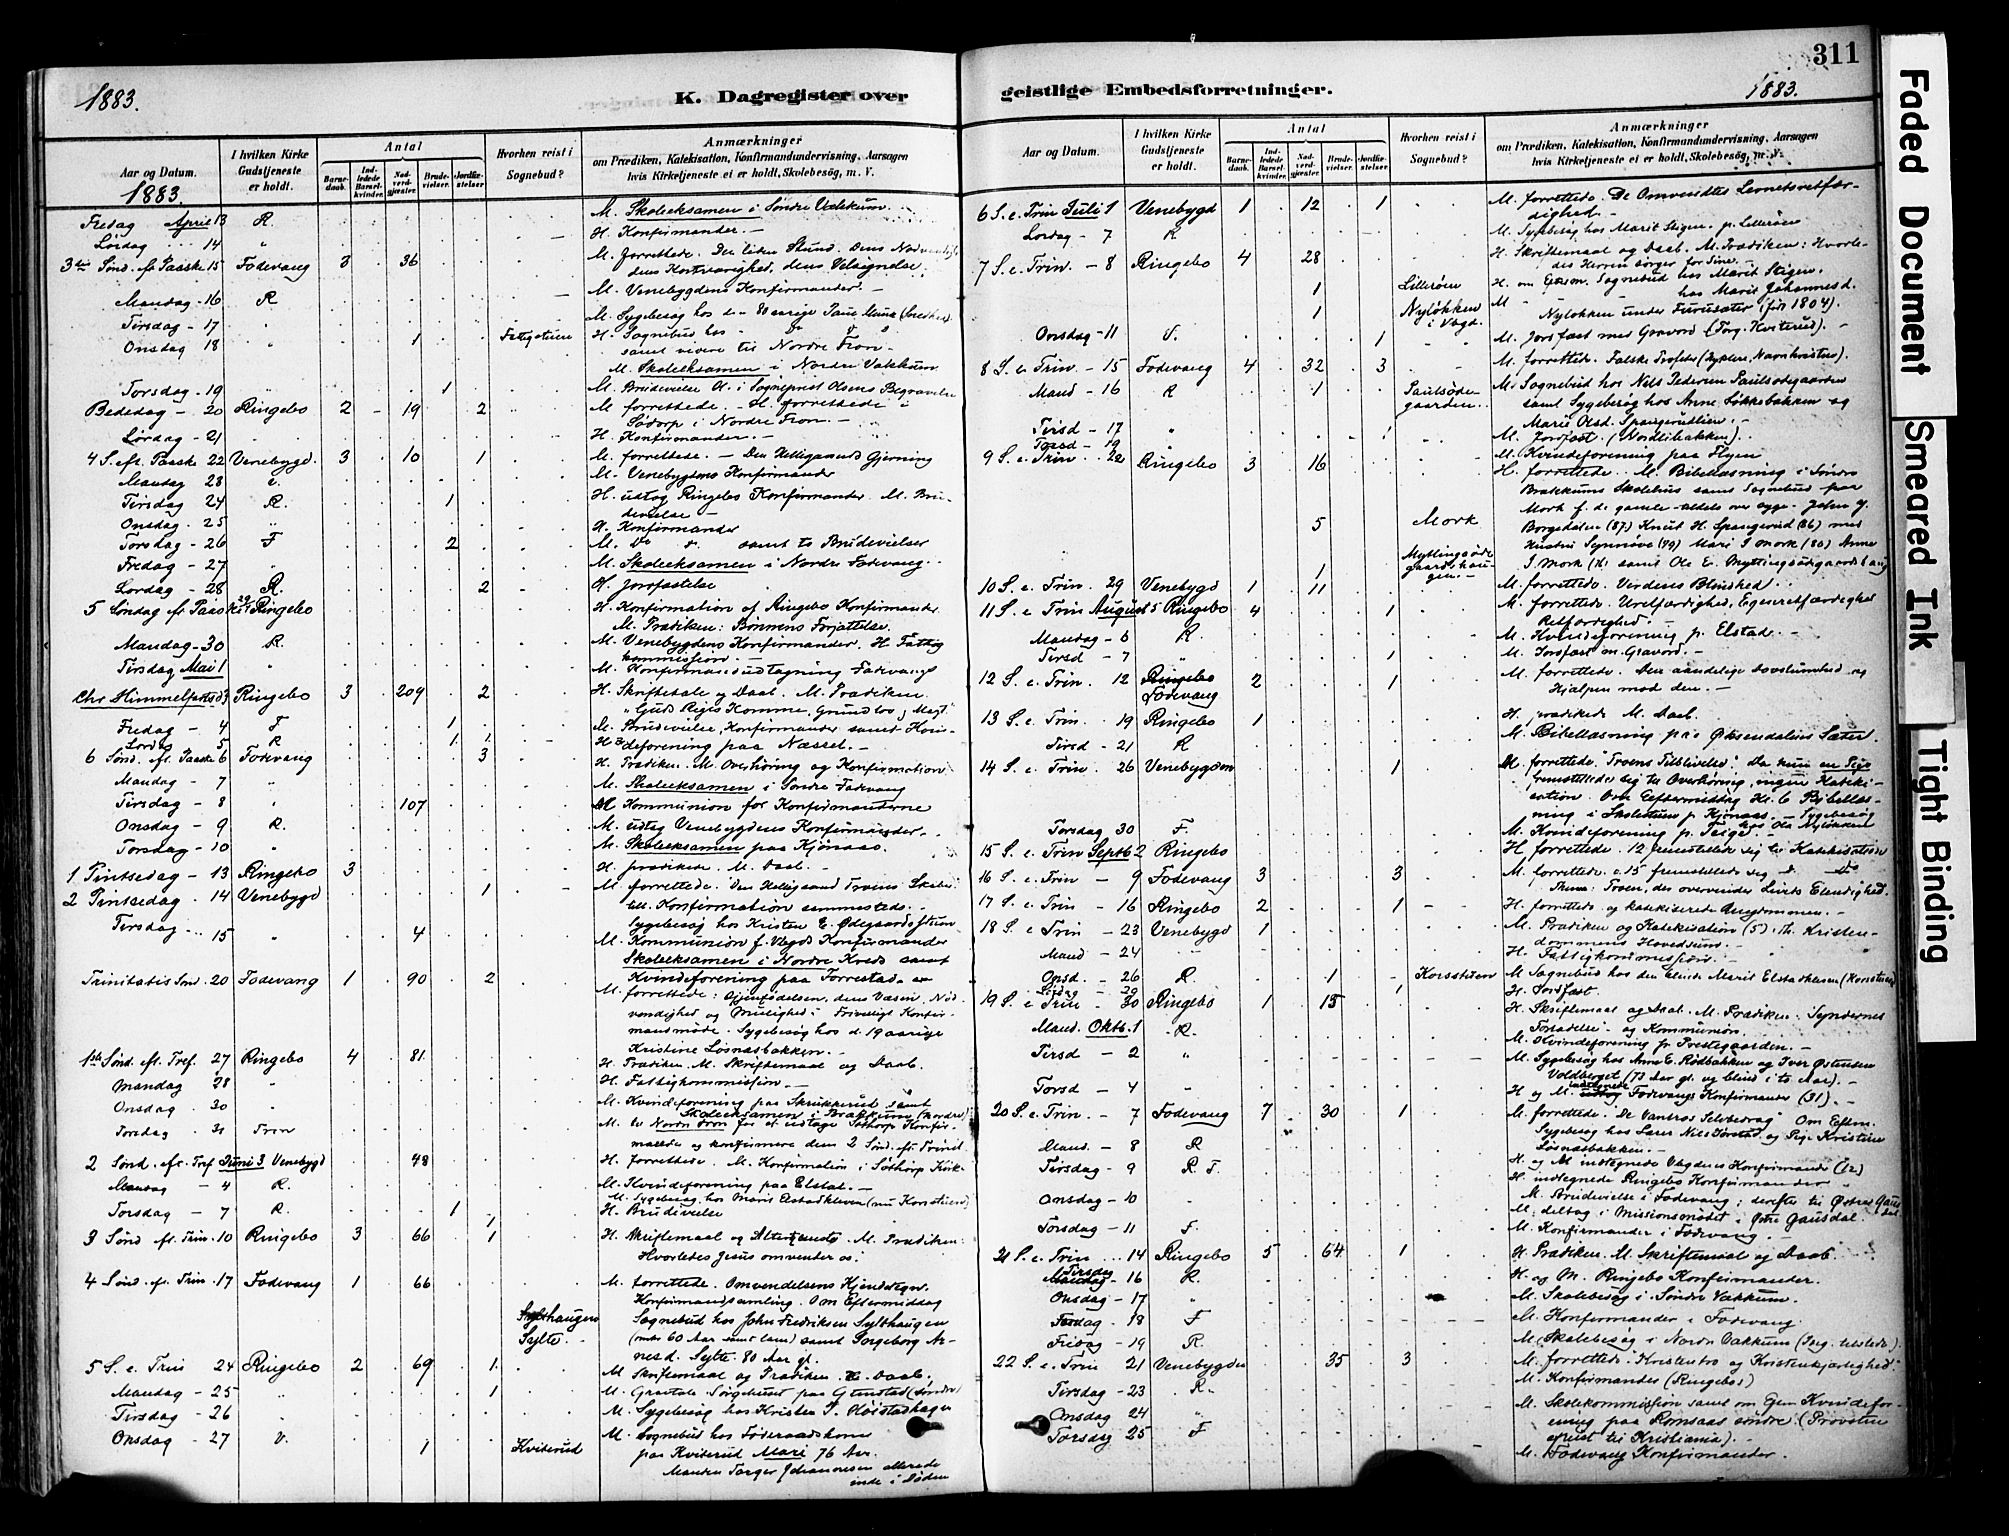 311
1883.
K. Dagregister over
geistlige Embedsforretninger.
1883.
Aar og Datum.
I hvilken Kirke Gudstjeneste er holdt.
Antal
Barnedaab.
Indledede Barselkvinder.
Nadverdgjester.
Brudevielser.
Jordfæstelser
Hvorhen reist i Sognebud?
Anmærkninger
om Prædiken, Katekisation, Konfirmandundervisning, Aarsagen
hvis Kirketjeneste ei er holdt, Skolebesøg, m. V.
1883.
Fredag April 13 R. M. Skoleeksamen i Søndre Vækkum
Lørdag 14 " H. Konfirmander. —
3die Sønd. ef. Paaske 15 Fodevang 3 36 M. forrettede. Den liden Stund. Dens
dens Kortvarighed, dens Velsignelse.
Mandag - 16 R M. Venebygdens Konfirmander —
Tirsdag - 17 M. Sygebesøg hos
Onsdag 18 1 H. Sognebud hos
samt videre til Nordre Fron.
M. Skoleeksamen i Nordre Vækkum
Torsdag - 19 1 M. Brudevielse H. i Sogneprest Olsens Begravelse
Bededag - 20 Ringebo 2 19 2 M forrettede. H. forrettede i
Sødorp i Nordre Fron. —
Lørdag - 21 H. Konfirmander. —
4 S. ef. Paaske 22 Venebygd. 3 10 1 M. forrettede. — Den Helligaands Gjerning
Mandag 23 M. Venebygdens Konfirmander
Tirsdag 24 R. 1 H. udtog Ringebo Konfirmander. M. Bru-
devielse —
Onsdag - 25 H. Konfirmander
Torsdag - 26 F 2 M. samt to Brudevielser
Fredag - 27 M. Skoleeksamen i Nordre Fodevang.
Lørdag - 28 R. 2 H. Jordfæstelse
5 Søndag ef. Paaske 29 Ringebo H. Konfirmation af Ringebo Konfirmander
M. Prædiken: Bønnens Forjættelse.
Mandag - 30 R. M. Venebygdens Konfirmander. H. Fattig
kommission. —
Tirsdag Mai 1 " M. Konfirmandudtagning Fodevang
Chr Himmelfartsd 3 Ringebo 3 209 2 H. Skriftetale og Daab. M. Prædiken
"Guds Riges Komme, Grundlov og Magt."
Fredag - 4 F 1 M. Brudevielse, Konfirmander samt Kvin-
Lørdag 5 R 1 1 deforening paa Næssel. —
6 Sønd. ef. Paaske 6 Fodevang 3 H. Prædiken. M. Overhøring og Konfirmation
Mandag - 7 " M. Skoleeksamen i Søndre Fodevang
Tirsdag - 8 107 M Kommunion for Konfirmanderne
Onsdag - 9 R. M. udtog Venebygdens Konfirmander.
Torsdag - 10 M. Skoleeksamen paa Kjønaas.
1 Pintsedag - 13 Ringebo 3 H. prædikede. M. Daab. —
2 Pintsedag - 14 Venebygd 1 M. forrettede. Den Helligaand Troens
till. Konfirmation sammesteds. —
Sygebesøg hos Kristen E. Ødegaards
Tirsdag 15 4 M. Kommunion f. Vbgds Konfirmander
Skoleeksamen i Nordre Kreds samt
Kvindeforening paa Forrestad
Trinitatis Sønd. 20 Fodevang 1 90 2 M. forrettede: Gjenfødelsen, dens Væsen, Nød-
vendighed og Mulighed. Frivilligt Konfir-
mandmøde. Sygebesøg hos d. 19 aarige
Kristine Løsnæsbakken. —
1ste Sønd. ef. Tref. 27 Ringebo 4 81 H. Prædiken. M. Skriftemaal og Daab.
Mandag 28 " H. Fattigkommission. —
Onsdag 30 " M. Kvindeforening paa Skrukkerud samt
Skoleeksamen i Brækkum (nordre)
Torsdag 31 Fron M. til Nordre Fron for at udtage Søthorp Konfir-
mander og konfirmere dem 2 Sønd. eft. Trinit.
2 Sønd. ef. Tref Juni 3 Venebygd 48 H. forrettede. M. Konfirmation i Søthorp Kirk-
Mandag - 4 R. M. Kvindeforening paa Elstad. —
M. Sygebesøg hos Marit Elstadkleven (nu Korsstuen)
Torsdag - 7 R. 1 H. Brudevielse
3 Sønd ef. Trin. 10 Ringebo 3 66 1 H. Skriftemaal og Altertjeneste. M. Prædiken:
Hvorledes Jesus omvender os.
4 Sønd ef. Trin. 17 Fodevang 1 66 M. forrettede. Omvendelsens Kjendetegn.
Konfirmandsamling. Om Eftermiddag
Sylthaugen Sognebud hos John Fredriksen Sylthaugen
Sylte. (60 Aar samt lam) samt Ingeborg Ar-
nesd. Sylte. 80 Aar gl.
5 S. e. Trin 24 Ringebo 2 69 1 M Skriftemaal og Prædiken. H. Daab.
Mandag - 25 " 1 M. Gravtale. Sørgehuset paa Gunstad (Søndre)
Tirsdag - 26 " M. Sygebesøg hos Kristen P. Høistadhagen
Onsdag - 27 V. 1 Kviterud M. Sognebud hos Føderaadskone
paa Kviterud Mari 76 Aar.
Manden Torger Johannesen allerede
inde i Døden
6 S. e. Trin Juli 1 Venebygd 1 12 1 M. forrettede. De Omvendtes Levnetsretfær-
dighed. —
Lørdag - 7 R M. Sygebesøg hos Marit Stigen p. Lillerøen
7 S. e. Trin. - 8 Ringebo 4 28 H. Skriftemaal og Daab. M. Prædiken: Hvorle-
des Herren sørger for Sine. —
1 Lillerøen H. om Efterm. Sognebud hos Marit Stigen.
1 Nyløkken i Vbgd. M " hos Marit Johannesd.
Nyløkken under Furusæter (født 1804).
Onsdag - 11 V. 1 M. Jordfæst med Gravord (Torg. Kviterud). —
8 S. e. Trin. - 15 Fodevang 4 32 3 M. forrettede. Falske Profeter (Hyklere, Navnkristne).
Mand - 16 R 1 M. Sognebud hos Nils Pedersen Paulsødegaarden
samt Sygebesøg hos Anne Løkkebakken og
Marie Olsd. Spangerudlien. —
Tirsd - 17 " M. Jordfæst. (Nordlibakken). —
Torsd - 19 M. Kvindeforening paa Flyen
9 S. e. Trin. 22 Ringebo 3 16 H. forrettede. M. Bibellæsning i Søndre
Brækkums Skolehus samt Sognebud paa
5 Mork Mork f. de gamle-ældste over syge. John J.
Borgedalen (87) Knut H. Spangerud (86) med
Hustru Synnøve (79) Mari I Mork (80) Anne
1 I. Mork samt Ole E. Myttingsødegaardshaug
10 S. e. Trin. 29 Venebygd 1 11 M. forrettede. Verdens Blindhed
11 S. e Trin August 5 Ringebo 4 1 M. forrettede. Uretfærdighed, Egenretfærdighed
Retfærdighed. —
Mandag - 6 R. M. Kvindeforening p. Elstad. —
Tirsd - 7 " 1 M. Jordfæst m. Gravord. —
12 S. e. Trin. 12 Ringebo Fodevang 2 1 M. forrettede. Den aandelige Døvstumhed og
Hjælpen mod den. —
13 S. e Trin. 19 Ringebo 1 H. prædikede M. Daab.
Tirsd - 21 R M. Bibellæsning paa Øksendalens Sæter.
14 S. e Trin. 26 Venebygden 1 M. forrettede. Troens Tilblivelse. Da kun en Pige
fremstillede sig til Overhøring, ingen Kateki-
sation. Om Eftermiddag Kl. 6 Bibellæs-
ning i Skolestuen p. Kjønaas. — Sygebesøg
hos Ola Nyløkken
Torsdag 30 F. M. Kvindeforening p.
15 S. e. Trin Septb 2 Ringebo H forrettede. 12 fremstillede sig til Katekisation
16 S. e Trin - 9 Fodevang 3 3 M. forrettede. c. 15 fremstillede sig
Thema: Troen, der overvinder Livets Elendighed.
17 S. e. Trin - 16 Ringebo 2 1 H. forrettede og katekiserede Ungdommen. —
18 S. e Trin - 23 Venebygd 1 M. Prædiken og Katekisation (5). Kristen-
dommens Hovedsum. —
Mand - 24 H. Fattigkommission. —
Onsd. - 26 R. 1 Korsstuen M Sognebud hos den blinde Marit Elstadkleven (Korsstuen)
Lørdag - 29 1 H. Jordfæst.
19 S. e Trin - 30 Ringebo 1 15 H. Skriftemaal og Daab. M. Prædiken: Syndernes
Forladelse. og Kommunion.
Mand. Oktb. 1 R. M. Kvindeforening p. Prestegaarden. —
Tirsd - 2 " M. Sygebesøg hos Anne E. Rødbakken og Iver Østensen
Voldberget (73 Aar gl. og blind i to Aar). —
Torsd - 4 " H og M. indtegnede Fodevangs Konfirmander (31). —
20 S. e. Trin. - 7 Fodevang 7 30 1 M. forrettede. De Vantros Selvbedrag Om Eftm.
Sygebesøg hos Lærer Nils Jørstad og Pige Kristine
Løsnæsbakken. —
Mand. - 8 R H. og M indtegnede Vbgdens Konfirmander (12)
Tirsdag - 9 R F. H. indtegnede Ringebo Konfirmander
M. Brudevielse i Fodevang; derefter til Østre Gausdal
Onsdag - 10 M. deltog i Missionsmødet i Østre Gausdal.
Torsdag - 11 F. M. Konfirmander i Fodevang. —
21 S. e. Trin 14 Ringebo 5 64 1 H Prædiken. M. Skriftemaal og Daab
Tirsdag - 16 R. H. og M. Ringebo Konfirmander.
Onsdag - 17 " M. Skolebesøg i Søndre Vækkum.
Torsdag - 18 F M. Konfirmander i Fodevang.
Fredag - 19 R. M. Skolebesøg i Nordre Vækkum
22 S. e. Trin 21 Venebygden 35 3 M. forrettede. Kristentro og Kristenkjærlighed
Tirsdag - 23 R. M. Konfirmander (Ringebos)
Onsdag 24 " M. Skolekommission samt om Eftm Kvindefor-
ening paa Romsaas søndre (Provsten
reist til Kristiania). —
Torsdag 25 F M. Fodevang Konfirmander.
Faded Document
Smeared Ink
Tight Binding